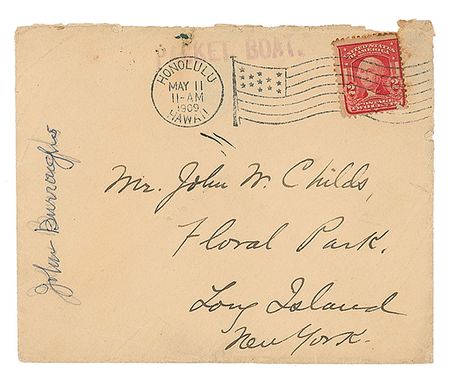 PACKET BOAT.
HONOLULU
MAY 11
11-AM
1909
HAWAII
UNITED STATES
OF AMERICA
2 2
Mr. John W. Childs,
Floral Park.
Long Island
New York.
John Burroughs